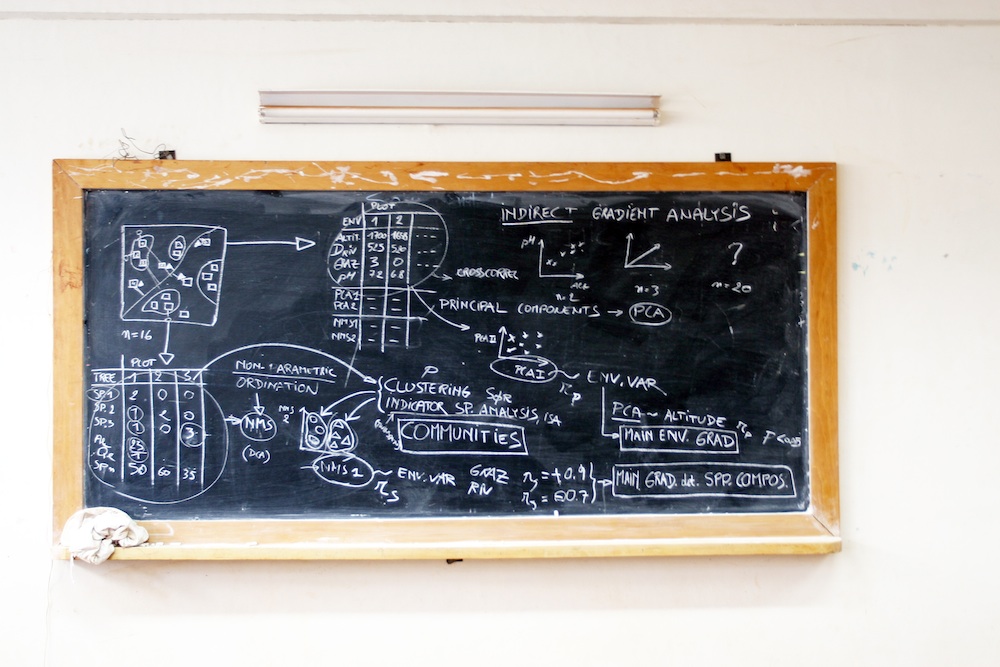 INDIRECT GRADIENT ANALYSIS
PLOT
ENV 1 2
ALTIT. 1700
DRIV 523
GRAZ 3 0
PH 72 68
PCA1 - -
PCA2 - -
NMS1 - -
NMS2 - -
CROSSCORREL
PH
n=2
n=3
?
n=20
PRINCIPAL COMPONENTS → PCA
n=16
PCA II
PCA I
ENV. VAR
PLOT
TREE 1 2 3
SP.1 2 0 0
SP.2 1 2 0
SP.3 1 0 3
SP.n 50 60 35
NON-PARAMETRIC
ORDINATION
NMS
(DCA)
NMS
2
NMS 1
CLUSTERING
INDICATOR SP. ANALYSIS, ISA
COMMUNITIES
PCA ~ ALTITUDE
MAIN ENV. GRAD
ENV. VAR GRAZ
RIV
MAIN GRAD. det. SPP. COMPOS.